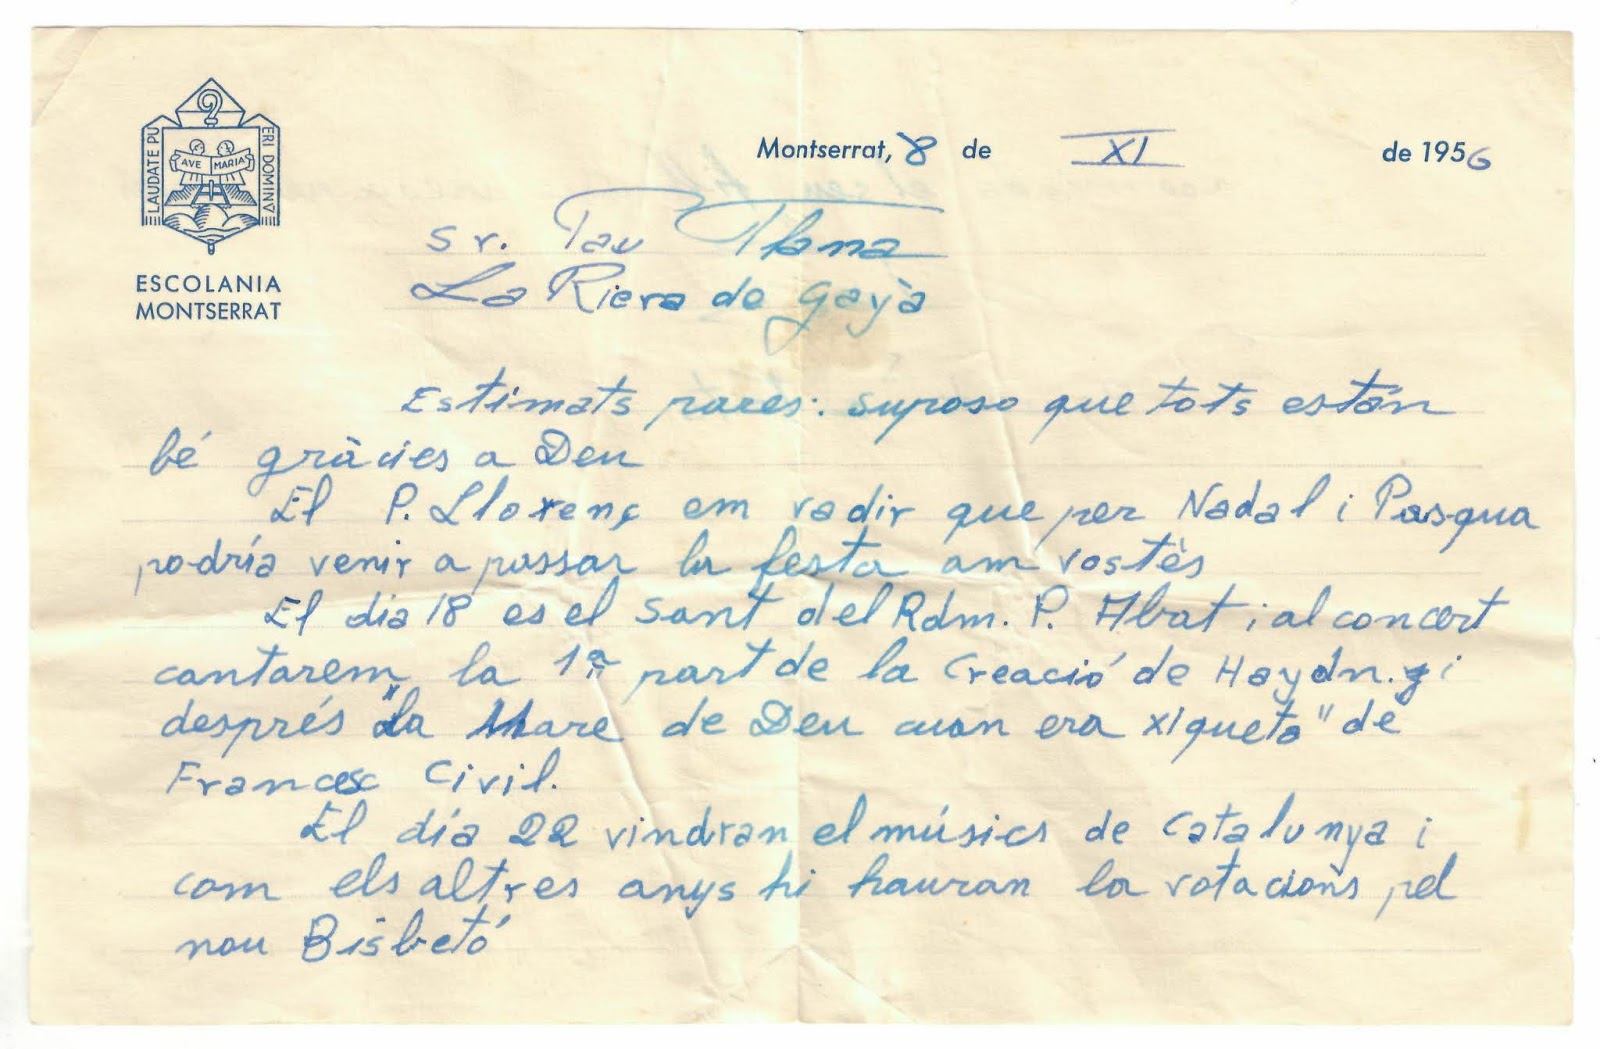 LAUDATE PU
ERI DOMINV
AVE MARIA
ESCOLANIA
MONTSERRAT
Montserrat, 8 de XI de 1956
Sr. Pau Plana
La Riera de Gayà
Estimats pares: suposo que tots están
bé gràcies a Deu
El P. Llorenç em va dir que per Nadal i Pasqua
podría venir a passar la festa am vostès
El dia 18 es el Sant del Rdm. P. Abat i al concert
cantarem la 1ª part de la Creació de Haydn. y i
després "la Mare de Deu cuan era xiqueta" de
Francesc Civil.
El día 22 vindran el músics de Catalunya i
com els altres anys hi hauran la votacions pel
nou Bisbetó